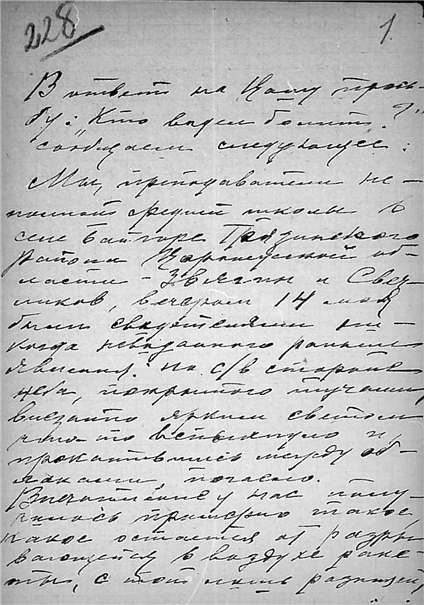 228
1
В ответ на Вашу прось-
бу: „Кто видел болид?"
сообщаем следующее:
Мы, преподаватели не-
полной средней школы в
селе Байгоре Грязинского
района Воронежской об-
ласти – Звягин и Свеч-
ников, вечером 14 мая
были свидетелями ни-
когда невиданного раньше
явления. На с/в стороне
неба, покрытого тучами,
внезапно ярким светом
что-то вспыхнуло и,
прокатившись между об-
лаками, погасло.
Впечатление у нас полу-
чилось примерно такое,
какое остается от разры-
вающейся в воздухе раке-
ты, с той лишь разницей,